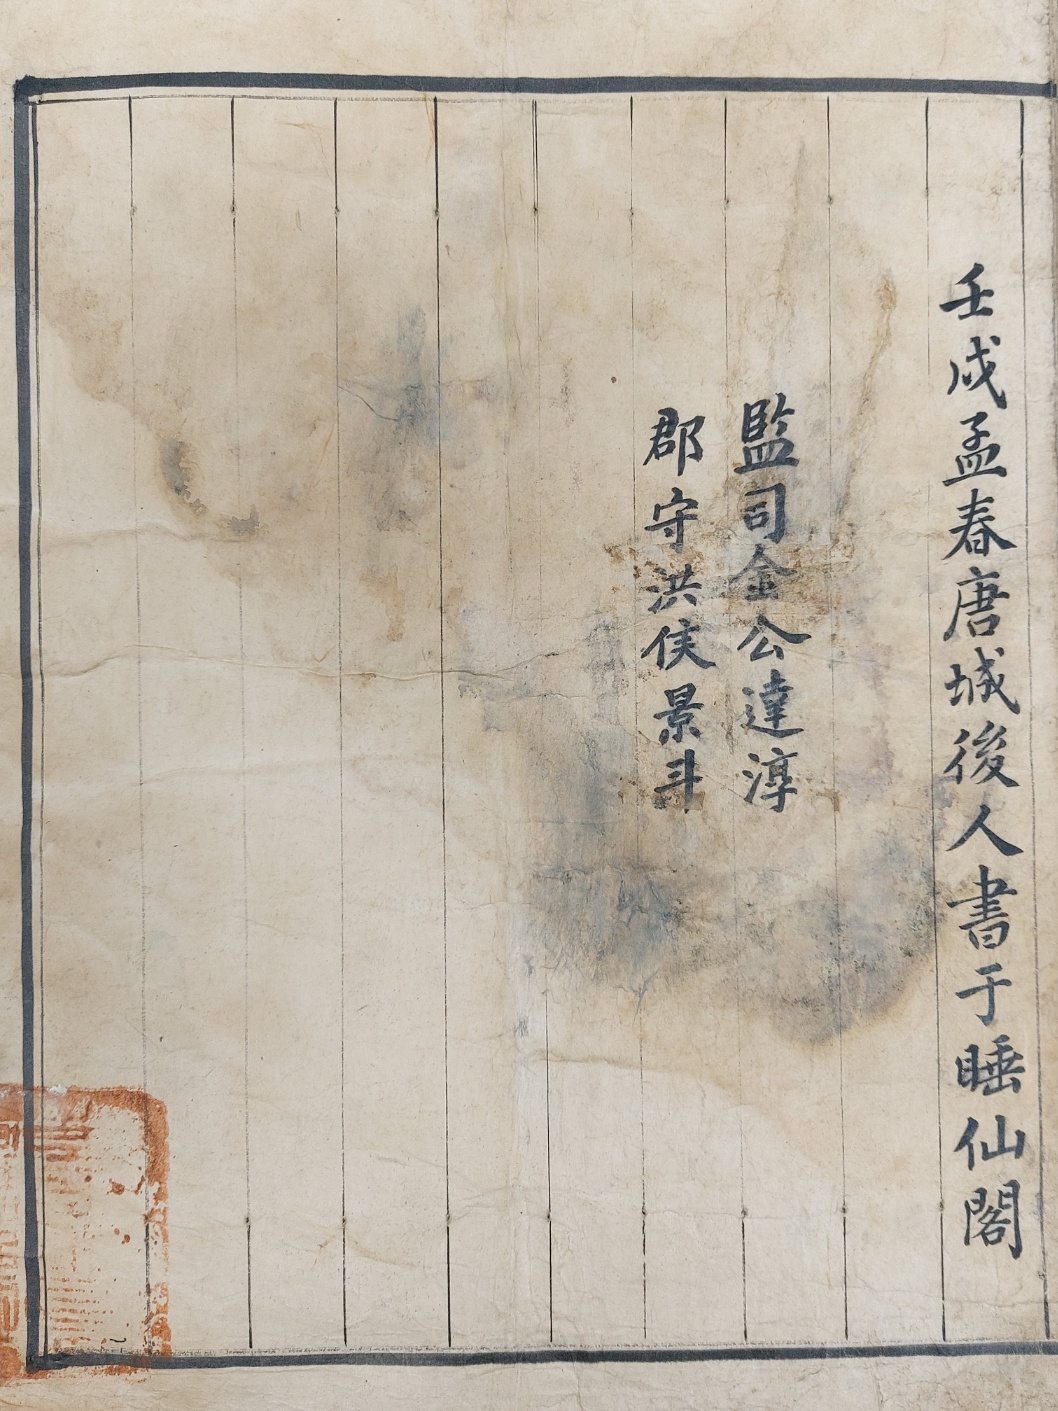 壬戌孟春唐城後人書于睡仙閣
監司金公達淳
郡守洪侯景斗